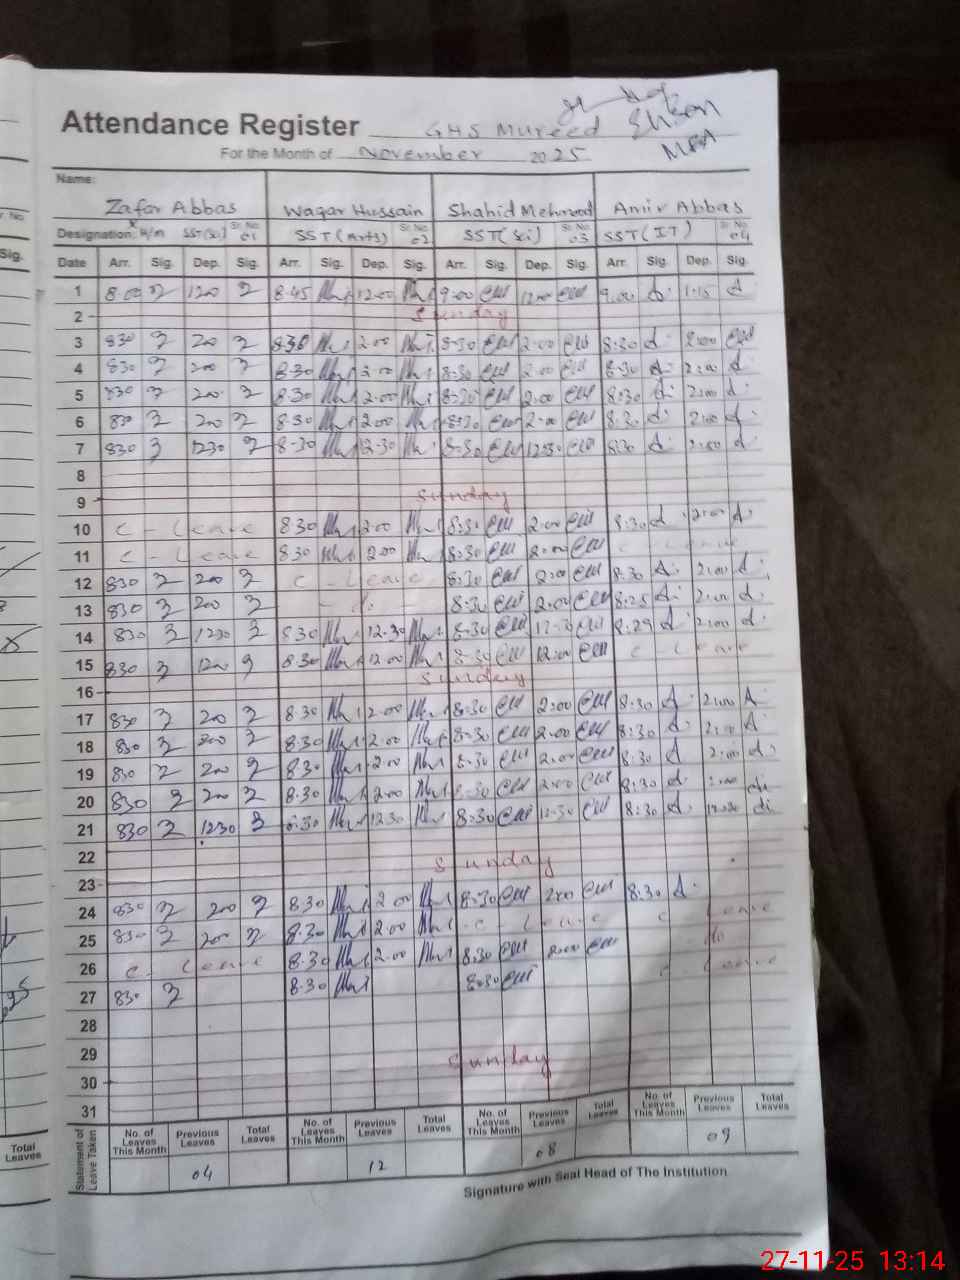 Ehsan
MEA
Attendance Register GHS Mureed
For the Month of November 2025
Name:
Zafar Abbas Waqar Hussain Shahid Mehmood Amir Abbas
Designation: H/m SST(Sci) Sr. No. 01 SST(Arts) Sr. No. 02 SST(Sci) Sr. No. 03 SST(IT) Sr. No. 04
Date Arr. Sig. Dep. Sig. Arr. Sig. Dep. Sig. Arr. Sig. Dep. Sig. Arr. Sig. Dep. Sig.
1 8.00 1200 8.45 12.00 9.00 12.00 9.00 1.15
2 Sunday
3 830 200 830 2.00 8-30 2.00 8:30 2:00
4 830 200 8.30 2.00 8-30 2.00 8.30 2:00
5 830 200 8.30 2.00 8-30 2.00 8:30 2:00
6 830 200 8.30 2.00 8:30 2.00 8.30 2:00
7 830 1230 8-30 12-30 8-30 12:30 8:30 2:00
8
9 Sunday
10 C - Leave 830 2.00 8:30 2.00 8:30 2:00
11 C - Leave 830 2.00 8:30 2.00 C - Leave
12 830 200 C - Leave 8:30 2:00 8:30 2:00
13 830 200 - do - 8:30 2.00 8:25 2:00
14 830 1230 830 12.30 8:30 12-30 8:29 2:00
15 830 1200 8.30 12.00 8-30 12:00 C - Leave
16 Sunday
17 830 200 8.30 2.00 8:30 2:00 8:30 2:00
18 830 200 8.30 2.00 8-30 2.00 8:30 2:00
19 830 200 8.30 2.00 8-30 2.00 8:30 2:00
20 830 200 8.30 2.00 8-30 2.00 8:30 2:00
21 830 1230 8.30 12.30 8:30 12-30 8:30
22
23 Sunday
24 830 200 8.30 2.00 8:30 2:00 8:30
25 830 200 8.30 2.00 C - Leave C Leave
26 C - Leave 8.30 2.00 8:30 2:00 do
27 830 8.30 8:30 C - Leave
28
29
30 Sunday
31
Statement of Leave Taken
No. of Leaves This Month Previous Leaves Total Leaves No. of Leaves This Month Previous Leaves Total Leaves No. of Leaves This Month Previous Leaves Total Leaves No. of Leaves This Month Previous Leaves Total Leaves
04 12 08 09
Signature with Seal Head of The Institution
Sig.
Total Leaves
27-11-25 13:14